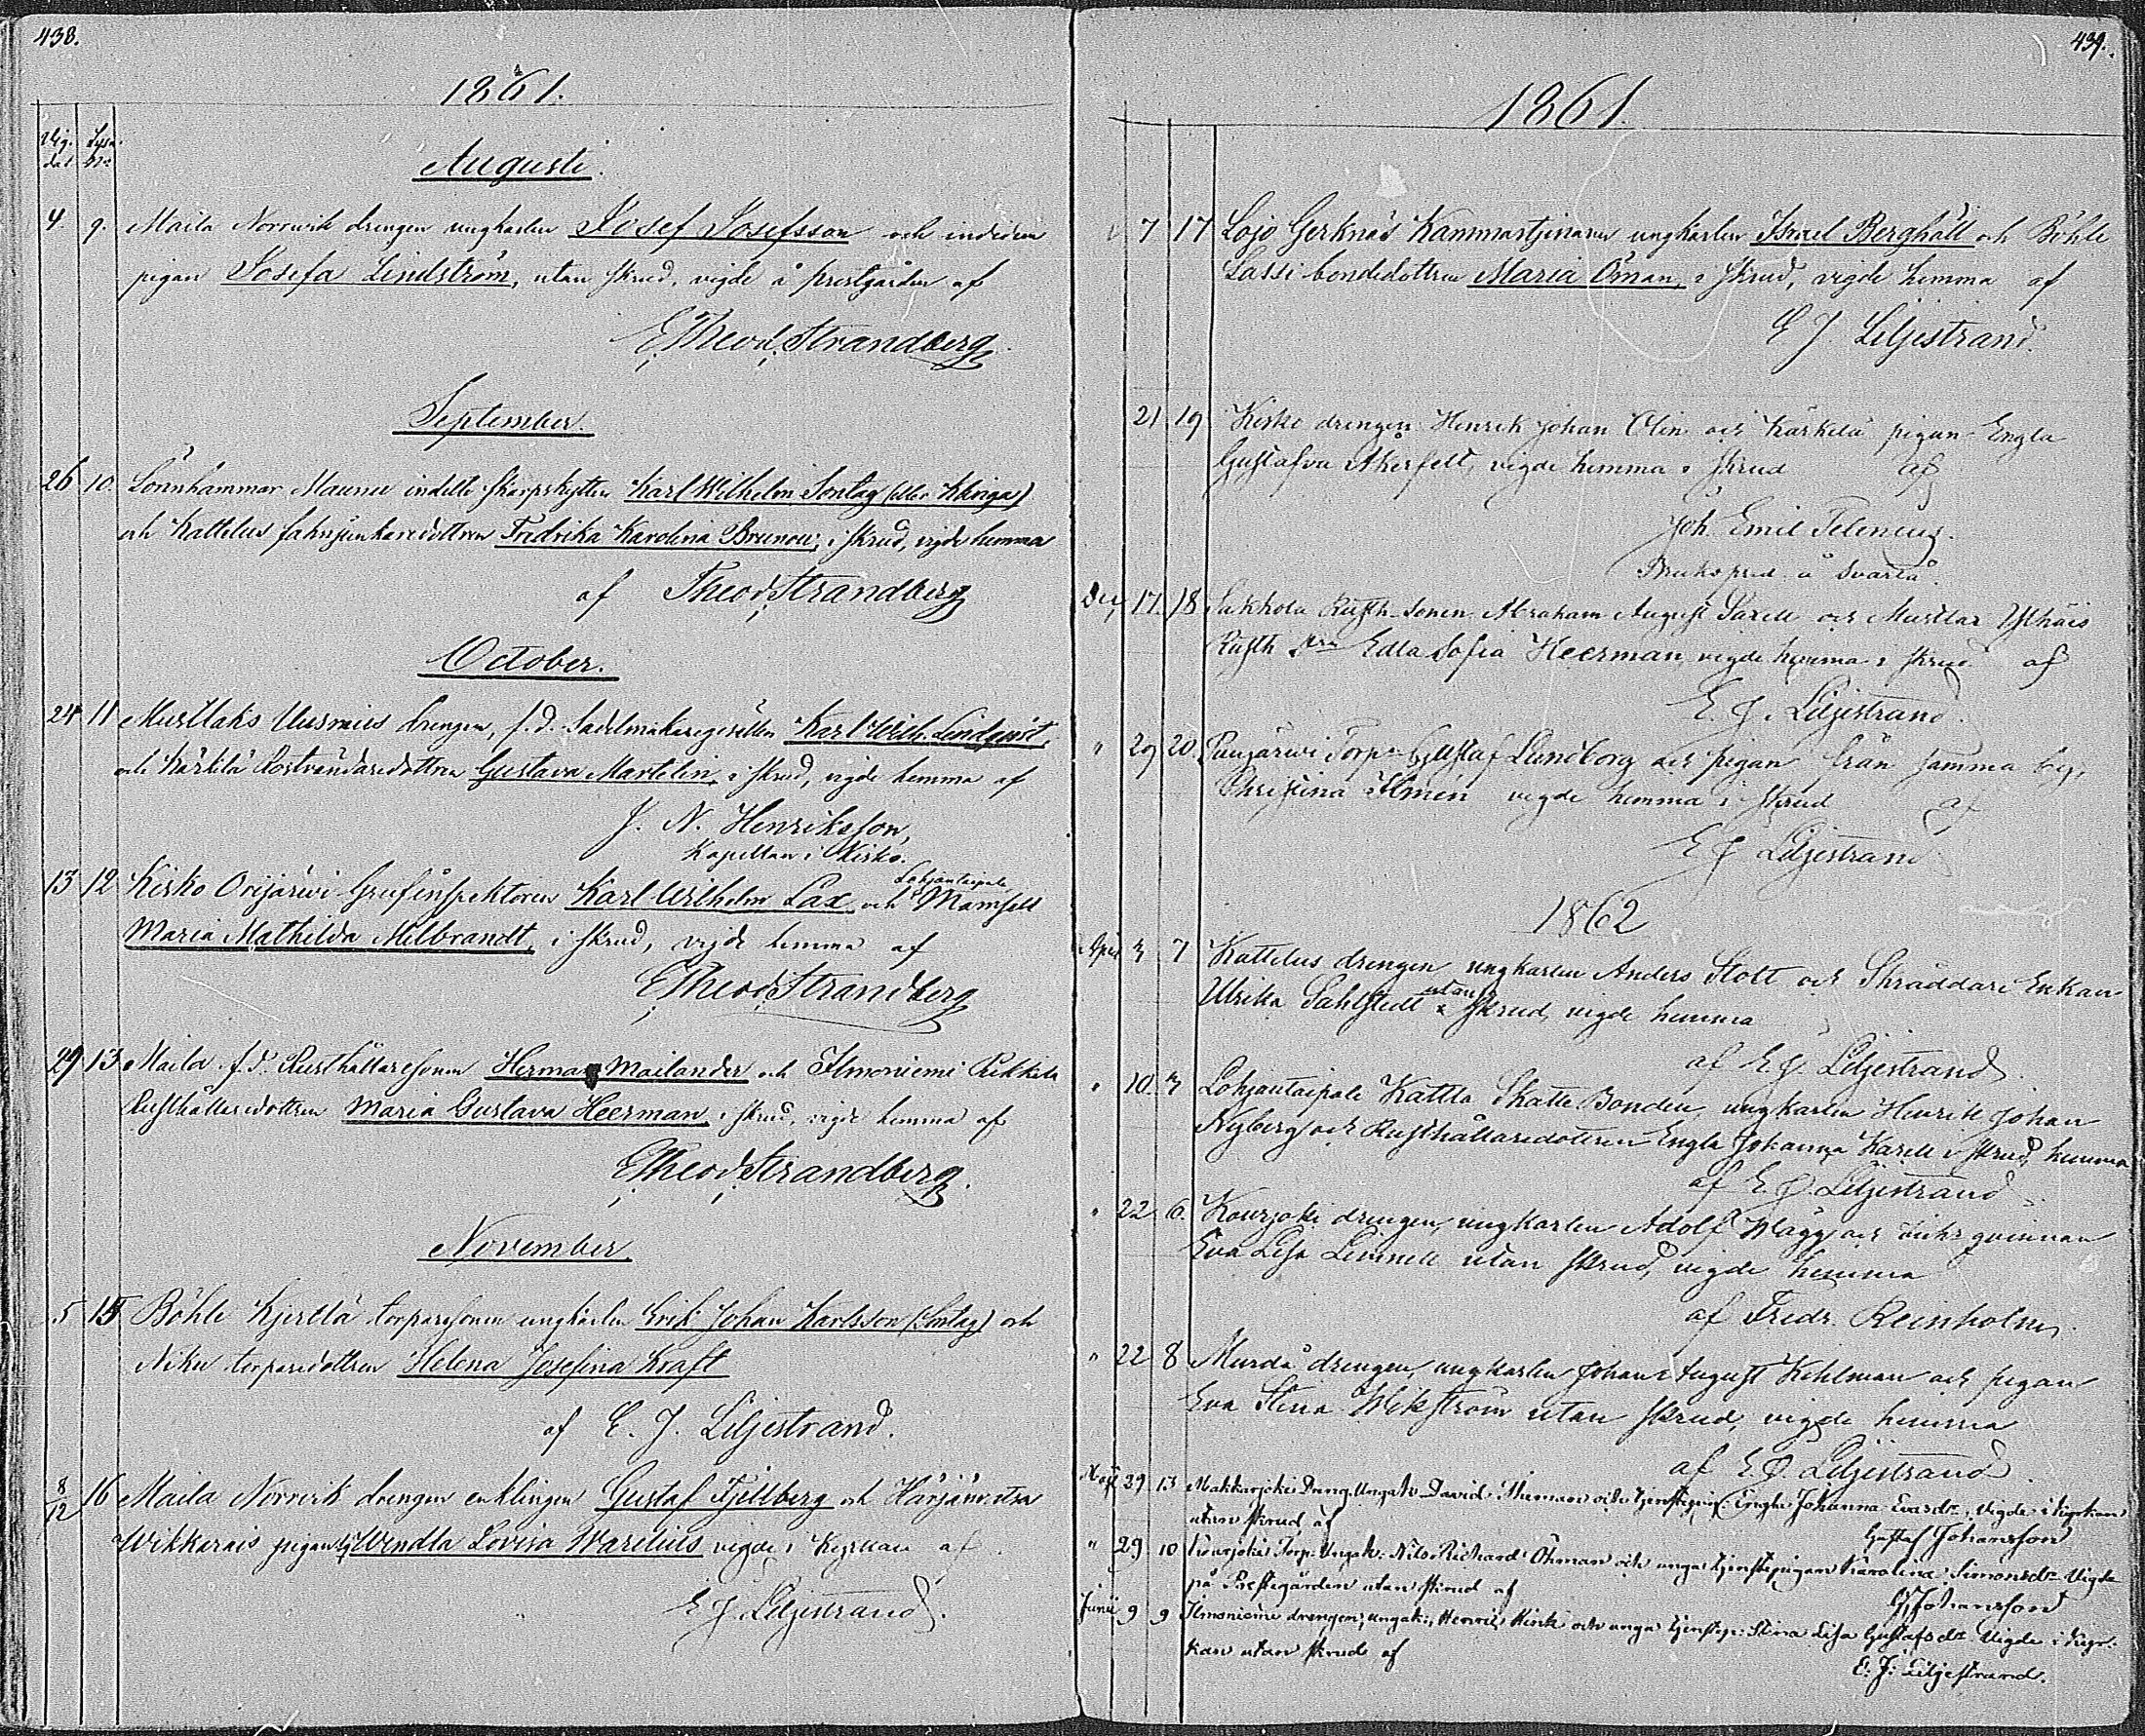 438.
1861.
Vig. Lysn.
dat. No
Augusti.
4. 9. Maila Norrvik drengen ungkarlen Josef Josefsson och inhises
pigan Josefa Lindström, utan skrud, vigde å prestgården af
E. Theod. Strandberg.
September.
26 10. Lönnhammar Maunu indelte skarpskytten Karl Wilhelm Sontag (eller Kliriga)
och Kattelus fahnjunkaredottren Fredrika Karolina Brunou, i skrud, vigde hemma
af Theod. Strandberg
October.
24 11 Mustlaks Uusmies drengen, f.d. Sadelmakaregesällen Karl Wilh. Lindqvist,
och Kärkelä Rostvändaredottren Gustava Martelin, i skrud, vigde hemma af
J. N. Henriksson,
Kapellan i Kisko.
13 12 Kisko Orijärwi Grufinspektoren Karl Wilhelm Lax och Lohjantaipale Mamsell
Maria Mathilda Milbrandt, i skrud, vigde hemma af
E Theod. Strandberg
29 13 Maila f.d. Rusthållaresonen Herman Mailander och Ilmoniemi Pikkala
Rusthållaredottren Maria Gustava Heerman, i skrud, vigde hemma af
E Theod. Strandberg.
November
5 15 Böhle Kjerllä torparesonen ungkarlen Erik Johan Karlsson (Sontag) och
Niku torparedottren Helena Josefina Kraft
af E. J. Liljestrand.
8/12 16 Maila Norrvik drengen enklingen Gustaf Fjellberg och Härjänvatsa
Wikkarais pigan Wendla Lovisa Warelius vigde i Kyrkan af
E J Liljestrand.
439.
1861.
7 17 Lojo Gerknäs Kammartjenaren ungkarlen Israel Berghäll och Böhle
Lassi bondedottren Maria Öman, i skrud, vigde hemma af
E J. Liljestrand.
21 19 Kisko drengen Henrik Johan Olin och Kärkelä pigan Engla
Gustafva Åkerfelt, vigde hemma i skrud af
Joh. Emil Telenius.
Brukspred. å Svartå.
Dec. 17. 18 Sakkola Rusth. sonen Abraham August Saxell och Mustlax Ylhäis
Rusth. Edla Sofia Heerman, vigde hemma i skrud af
E. J. Liljestrand.
" 29 20. Torp. Gustaf Lundborg och pigan från samma by,
Christina Ilmén vigde hemma i skrud af
E J Liljestrand
1862
April 3 7 Kattelus drengen ungkarlen Anders Stolt och Skräddare Enkan
Ulrika Sahlstedt utan skrud, vigde hemma
af E J. Liljestrand.
" 10. 3 Lohjantaipale Kattla Skatte Bonden, ungkarlen Henrik Johan
Nyberg och Rusthållaredottren Engla Johanna Karell i skrud, hemma
af E. J. Liljestrand
" 22 6. Kourjoki drengen, ungkarlen Adolf Mägg och inhs qvinnan
Eva Lisa Linnell utan skrud, vigde hemma
af Fredr. Reinholm.
" 22 8 Murda drengen, ungkarlen Johan August Kihlman och pigan
Eva Stina Wikström utan skrud, vigde hemma
af E. J. Liljestrand
Maji 29 13 Makkarjoki Dreng. Ungk. David Thuman och tjenstepig. Engla Johanna Evasdr. Vigde i kyrkan
utan skrud af
Gustaf Johansson
" 29 10 Kourjoki Torp. Ungk. Nils Richard Öhman och unga tjenstepigan Karolina Simonsdr. Vigde
på Prestegården utan skrud af
G. Johansson
Junii 9 9 Ilmoniemi drengen, ungk., Henric Hirik och unga tjenstep. Stina Lisa Gustafsdr Vigde i kyr-
kan utan skrud af
E. J. Liljestrand.